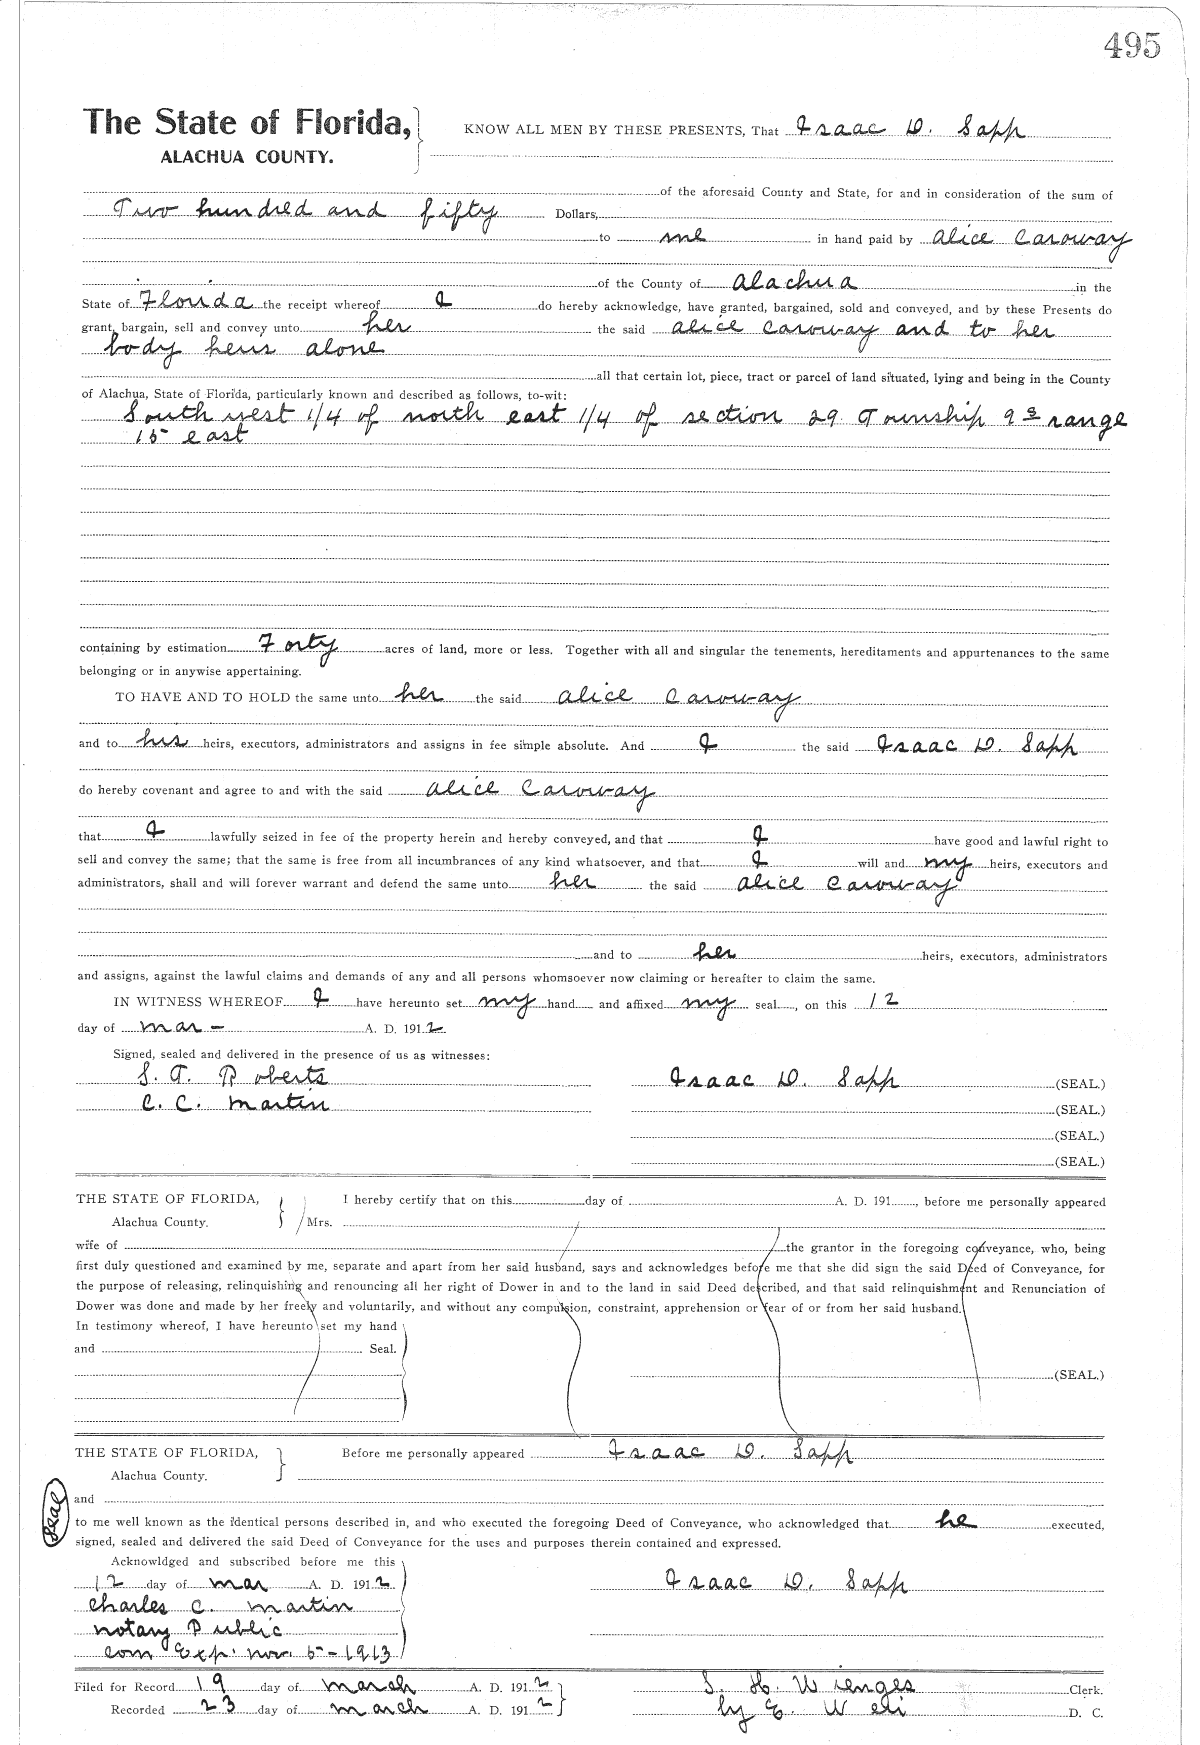 495
The State of Florida,
ALACHUA COUNTY.
KNOW ALL MEN BY THESE PRESENTS, That Isaac D. Sapp
of the aforesaid County and State, for and in consideration of the sum of
Two hundred and fifty Dollars,
to me in hand paid by Alice Caroway
of the County of Alachua in the
State of Florida the receipt whereof I do hereby acknowledge, have granted, bargained, sold and conveyed, and by these Presents do
grant, bargain, sell and convey unto her the said Alice Caroway and to her
body heirs alone
all that certain lot, piece, tract or parcel of land situated, lying and being in the County
of Alachua, State of Florida, particularly known and described as follows, to-wit:
South west 1/4 of north east 1/4 of section 29 Township 9 s range
15 east
containing by estimation Forty acres of land, more or less. Together with all and singular the tenements, hereditaments and appurtenances to the same
belonging or in anywise appertaining.
TO HAVE AND TO HOLD the same unto her the said Alice Caroway
and to his heirs, executors, administrators and assigns in fee simple absolute. And I the said Isaac D. Sapp
do hereby covenant and agree to and with the said Alice Caroway
that I lawfully seized in fee of the property herein and hereby conveyed, and that I have good and lawful right to
sell and convey the same; that the same is free from all incumbrances of any kind whatsoever, and that I will and my heirs, executors and
administrators, shall and will forever warrant and defend the same unto her the said Alice Caroway
and to her heirs, executors, administrators
and assigns, against the lawful claims and demands of any and all persons whomsoever now claiming or hereafter to claim the same.
IN WITNESS WHEREOF I have hereunto set my hand and affixed my seal, on this 12
day of Mar - A. D. 1912
Signed, sealed and delivered in the presence of us as witnesses:
S. T. Roberts Isaac D. Sapp (SEAL.)
C. C. Martin (SEAL.)
(SEAL.)
(SEAL.)
THE STATE OF FLORIDA, I hereby certify that on this day of A. D. 191 , before me personally appeared
Alachua County. Mrs.
wife of the grantor in the foregoing conveyance, who, being
first duly questioned and examined by me, separate and apart from her said husband, says and acknowledges before me that she did sign the said Deed of Conveyance, for
the purpose of releasing, relinquishing and renouncing all her right of Dower in and to the land in said Deed described, and that said relinquishment and Renunciation of
Dower was done and made by her freely and voluntarily, and without any compulsion, constraint, apprehension or fear of or from her said husband.
In testimony whereof, I have hereunto set my hand
and Seal.
(SEAL.)
THE STATE OF FLORIDA, Before me personally appeared Isaac D. Sapp
Alachua County.
and
Seal
to me well known as the identical persons described in, and who executed the foregoing Deed of Conveyance, who acknowledged that he executed,
signed, sealed and delivered the said Deed of Conveyance for the uses and purposes therein contained and expressed.
Acknowldged and subscribed before me this
12 day of Mar A. D. 1912 Isaac D. Sapp
Charles C. Martin
Notary Public
Com Exp. Nov. 5 - 1913
Filed for Record 19 day of March A. D. 1912 S. H. Wienges Clerk.
Recorded 23 day of March A. D. 1912 by E. D. C.